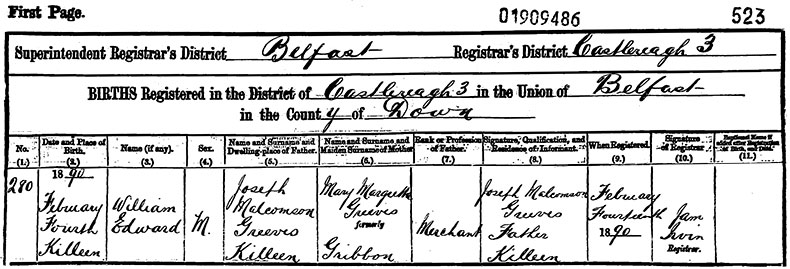 First Page.
01909486
523
Superintendent Registrar's District Belfast Registrar's District Castlereagh 3
BIRTHS Registered in the District of Castlereagh 3 in the Union of Belfast
in the County of Down
No. Date and Place of Birth. Name (if any). Sex. Name and Surname and Dwelling-place of Father. Name and Surname and Maiden Surname of Mother Rank or Profession of Father. Signature, Qualification, and Residence of Informant. When Registered. Signature of Registrar. Baptismal Name if added after Registration of Birth, and Date.
(1.) (2.) (3.) (4.) (5.) (6.) (7.) (8.) (9.) (10.) (11.)
280
1890
February
Fourth
Killeen
William
Edward
M.
Joseph
Malcomson
Greeves
Killeen
Mary Margretta
Greeves
formerly
Gribbon
Merchant
Joseph Malcomson
Greeves
Father
Killeen
February
Fourteenth
1890
Jam
Irvin
Registrar.